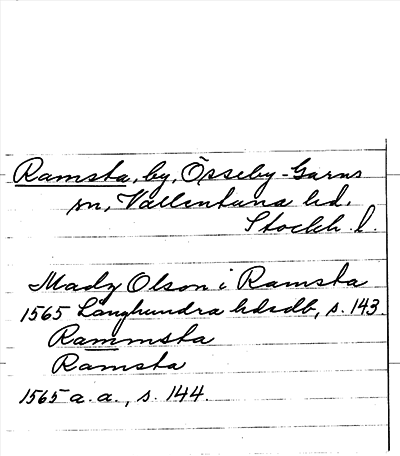 Ramsta, by, Össeby-Garns
sn, Vallentuna hd,
Stockh. l.
Mady Olson i Ramsta
1565 Långhundra hdsdb, s. 143.
Rammsta
Ramsta
1565 a. a., s. 144.